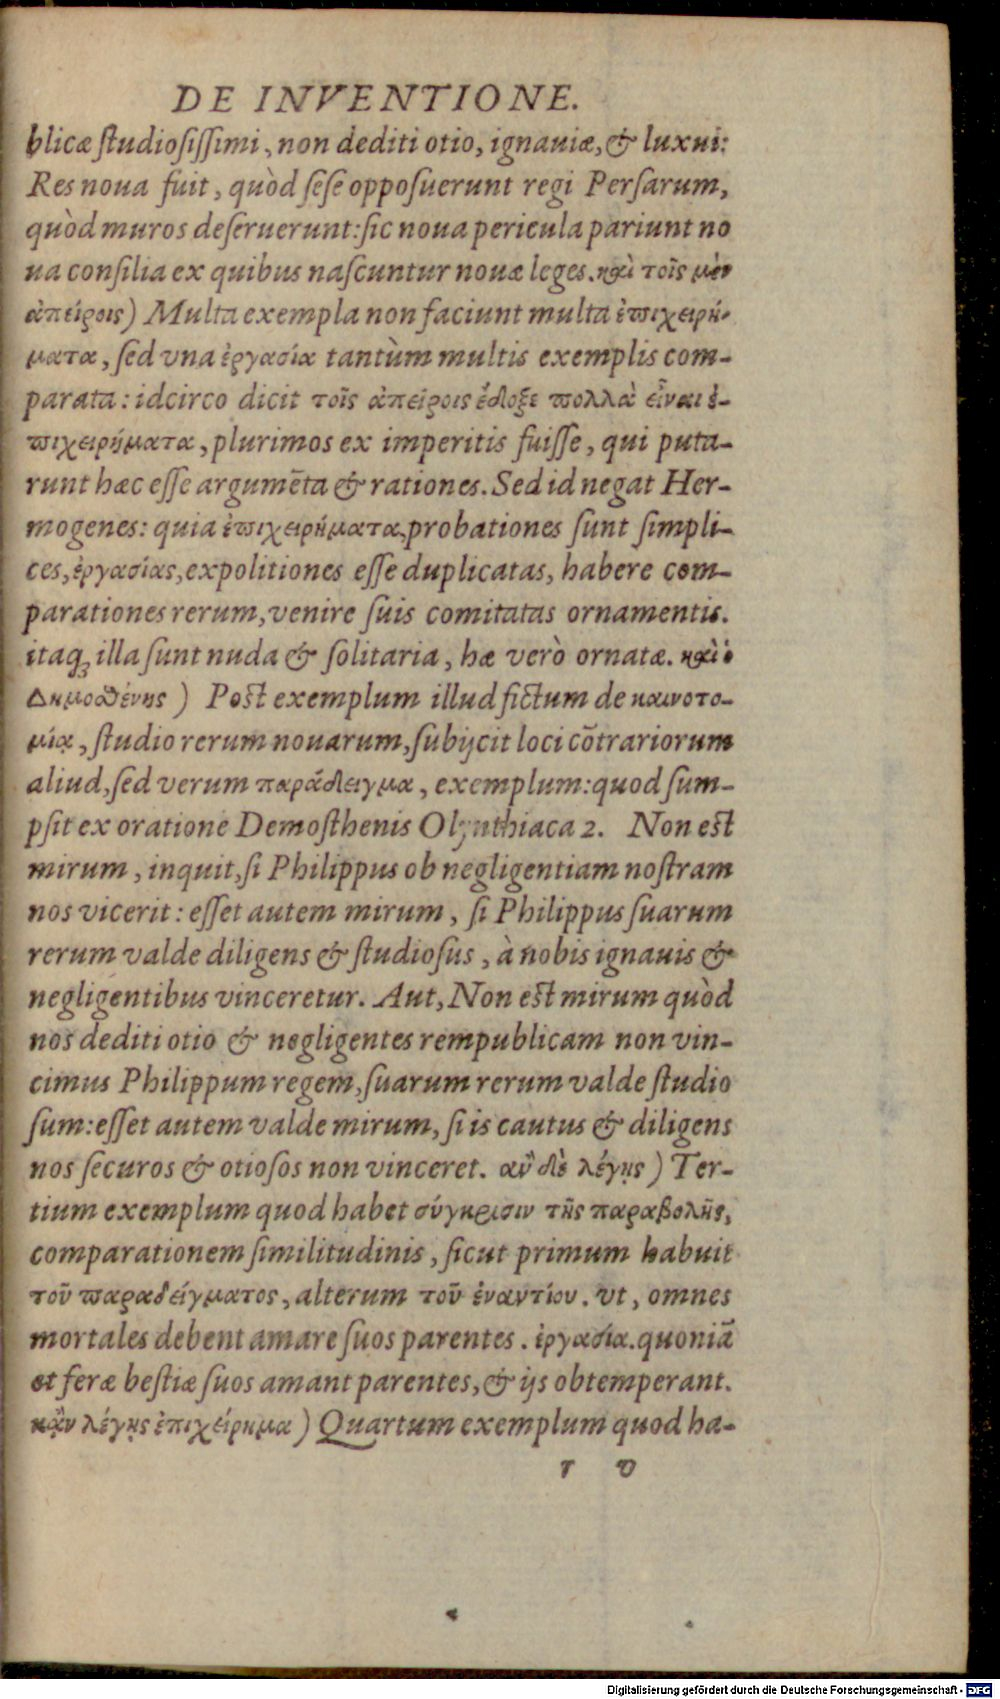 DE INVENTIONE.
blicæ studiosissimi, non dediti otio, ignauiæ, & luxui:
Res noua fuit, quòd sese opposuerunt regi Persarum,
quòd muros deseruerunt: sic noua pericula pariunt no
ua consilia ex quibus nascuntur nouæ leges. καὶ τοῖς μὲν
ἀπείροις) Multa exempla non faciunt multa ἐπιχειρή-
ματα, sed vna ἐργασία tantùm multis exemplis com-
parata: idcirco dicit τοῖς ἀπείροις ἔδοξε πολλὰ εἶναι ἐ-
πιχειρήματα, plurimos ex imperitis fuisse, qui puta-
runt hæc esse argumēta & rationes. Sed id negat Her-
mogenes: quia ἐπιχειρήματα, probationes sunt simpli-
ces, ἐργασίας, expolitiones esse duplicatas, habere com-
parationes rerum, venire suis comitatas ornamentis.
itaq; illa sunt nuda & solitaria, hæ verò ornatæ. καὶ ὁ
Δημοσθένης) Post exemplum illud fictum de καινοτο-
μίᾳ, studio rerum nouarum, subijcit loci cōtrariorum
aliud, sed verum παράδειγμα, exemplum: quod sum-
psit ex oratione Demosthenis Olynthiaca 2. Non est
mirum, inquit, si Philippus ob negligentiam nostram
nos vicerit: esset autem mirum, si Philippus suarum
rerum valde diligens & studiosus, à nobis ignauis &
negligentibus vinceretur. Aut, Non est mirum quòd
nos dediti otio & negligentes rempublicam non vin-
cimus Philippum regem, suarum rerum valde studio
sum: esset autem valde mirum, si is cautus & diligens
nos securos & otiosos non vinceret. ἂν δὲ λέγῃς) Ter-
tium exemplum quod habet σύγκρισιν τῆς παραβολῆς,
comparationem similitudinis, sicut primum habuit
τοῦ παραδείγματος, alterum τοῦ ἐναντίου. vt, omnes
mortales debent amare suos parentes. ἐργασία. quoniā
et feræ bestiæ suos amant parentes, & ijs obtemperant.
κᾂν λέγῃς ἐπιχείρημα) Quartum exemplum quod ha-
r v
Digitalisierung gefördert durch die Deutsche Forschungsgemeinschaft - DFG